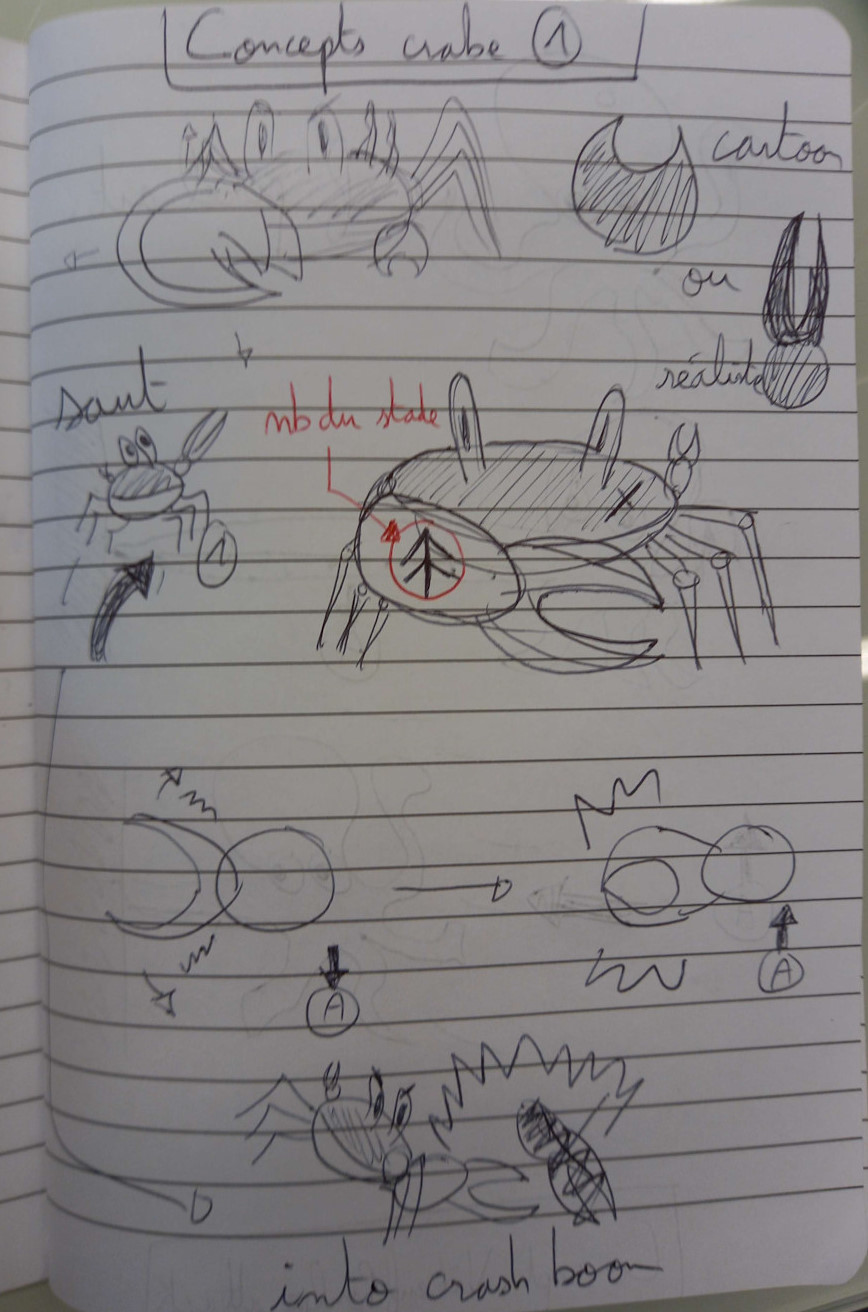 Concepts crabe 1
cartoon
ou
réaliste
saut
nb du stade
1
A
A
into crash boom